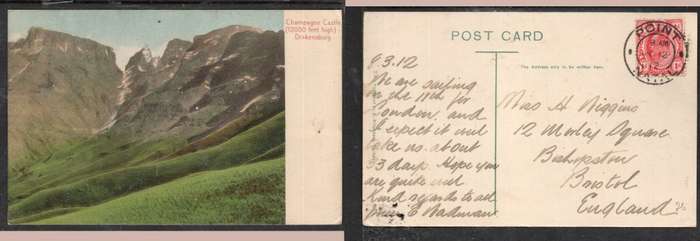 Champagne Castle
(12000 feet high)
Drakensburg
POST CARD
The Address only to be written here.
POINT
9.3.12
We are sailing
on the 11th for
London, and
I expect it will
take us about
33 days. Hope you
are quite well
Kind regards to all
Miss H Wiggins
12 Morley Square
Bishopston
Bristol
England